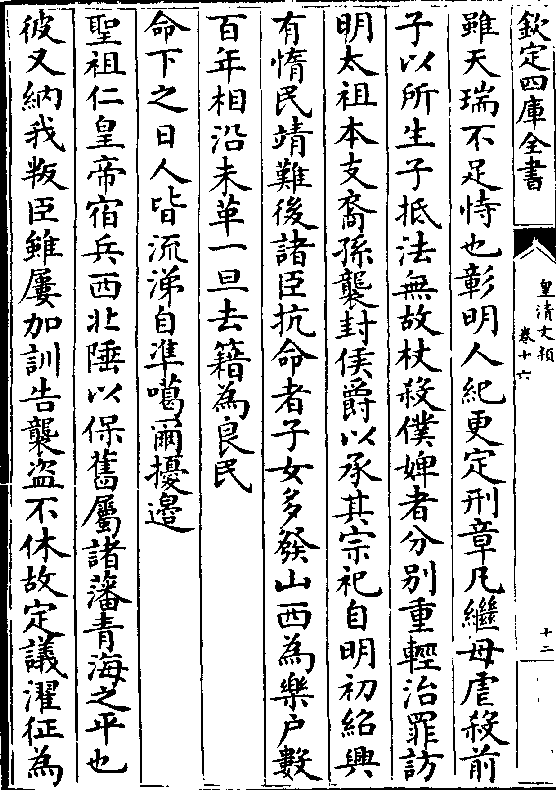 欽定四庫全書
皇清文穎
卷十六
十二
雖天瑞不足恃也彰明人紀更定刑章凡繼母虐殺前
子以所生子抵法無故杖殺僕婢者分别重輕治罪訪
明太祖本支裔孫襲封侯爵以承其宗祀自明初紹興
有惰民靖難後諸臣抗命者子女多發山西為樂户數
百年相沿未革一旦去籍為良民
命下之日人皆流涕自凖噶爾擾邉
聖祖仁皇帝宿兵西北陲以保舊屬諸藩青海之平也
彼又納我叛臣雖屢加訓告襲盗不休故定議濯征為